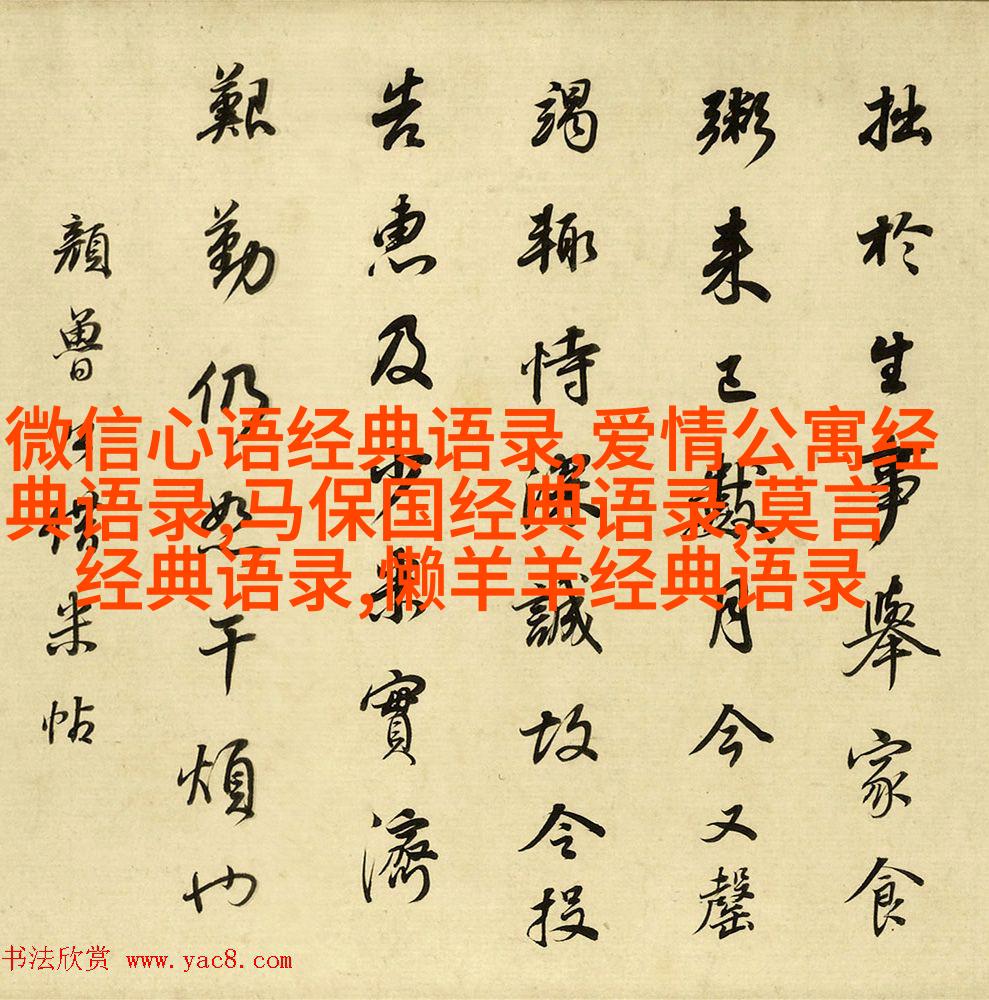 拙於生事舉家食
粥来已數月今又罄
竭輙恃深誠故令投
告惠及少米實濟
艱勤仍恕干煩也
顔魯公米帖
微信心语经典语录,爱情公寓经
典语录,马保国经典语录,莫言
经典语录,懒羊羊经典语录
书法欣赏 www.yac8.com